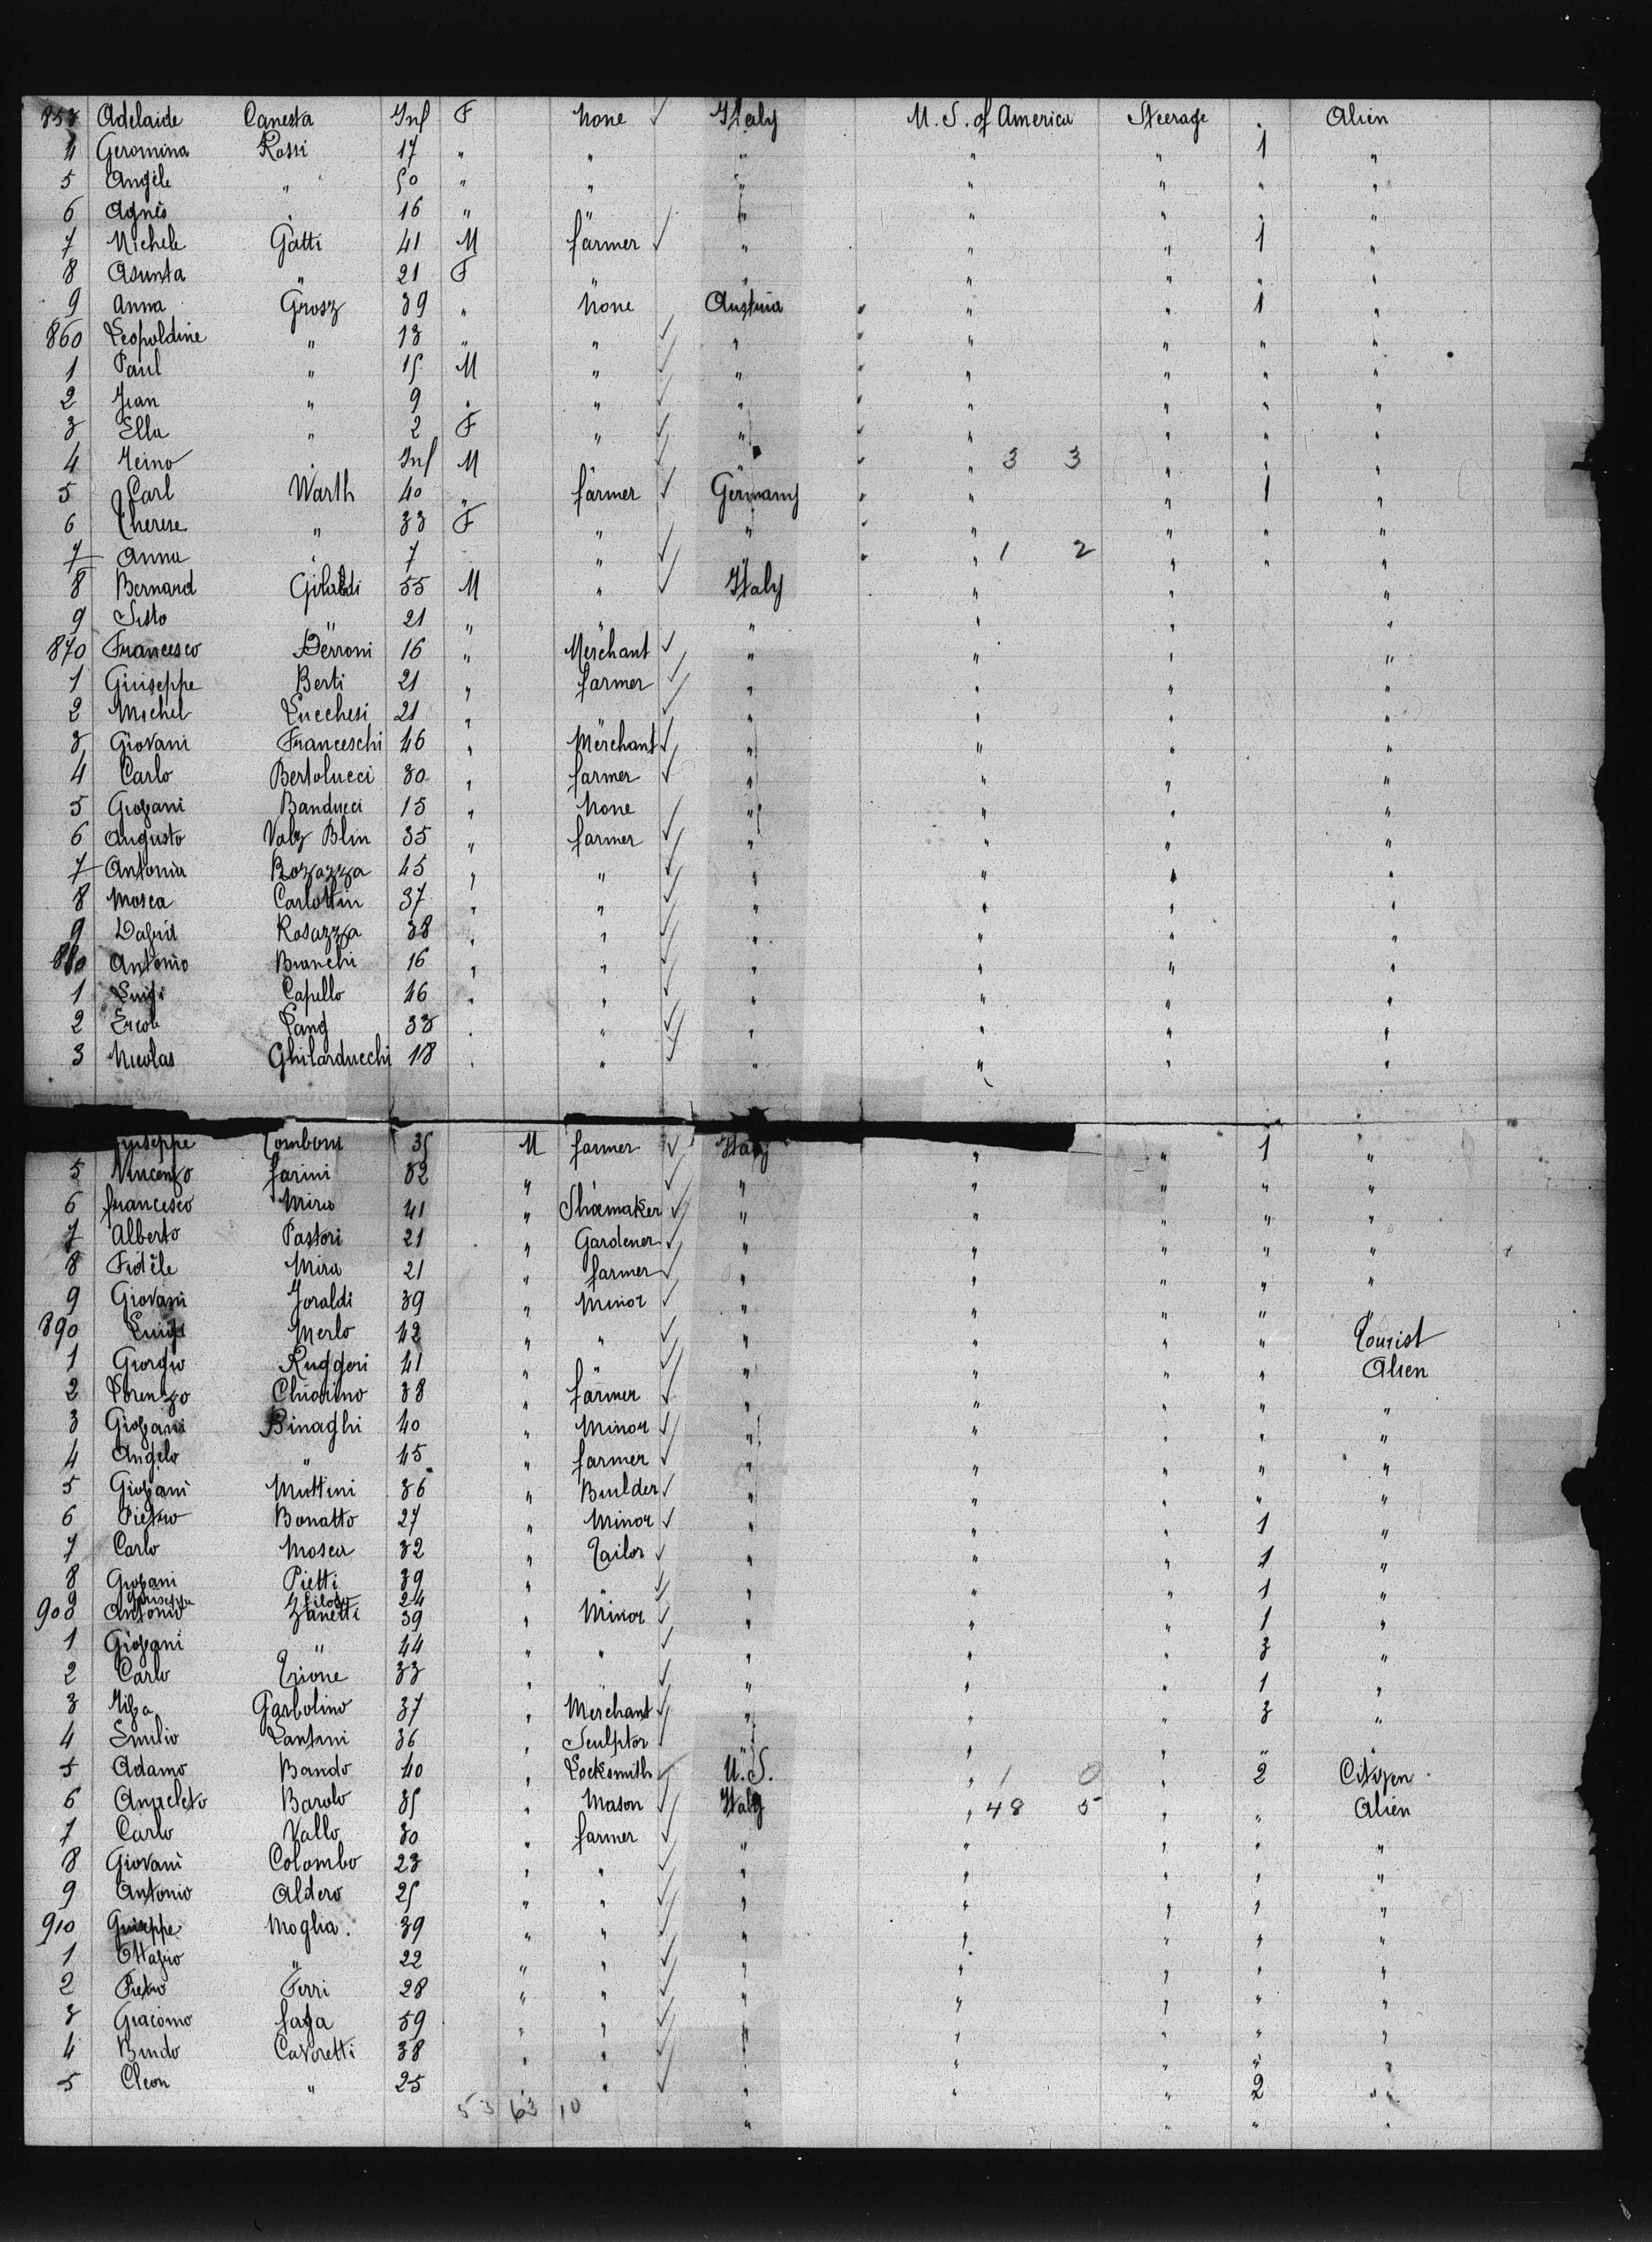 853 Adelaide Canesta Inf F None ✓ Italy U. S. of America Steerage " Alien
4 Geromina Rossi 17 " " " " " 1 "
5 Angèle " 50 " " " " " " "
6 Agnès " 16 " " " " " " "
7 Michele Gatti 41 M farmer ✓ " " " 1 "
8 Asunta " 21 F " " " " " "
9 Anna Grosz 39 " None Austria " " 1 "
860 Leopoldine " 13 " " ✓ " " " " "
1 Paul " 15 M " ✓ " " " " "
2 Jean " 9 " " ✓ " " " " "
3 Ella " 2 F " ✓ " " " " "
4 Heino " Inf M " ✓ " " 3 3 " " "
5 Carl Warth 40 " farmer ✓ Germany " " 1 "
6 Therese " 33 F " ✓ " " " " "
7 Anna " 7 " ✓ " " 1 2 " " "
8 Bernard Gilardi 55 M " ✓ Italy " " "
9 Sisto " 21 " " " " " "
870 Francesco Derroni 16 " Merchant ✓ " " " "
1 Giuseppe Berti 21 " farmer ✓ " " " "
2 Michel Lucchesi 21 " " ✓ " " " "
3 Giovani Franceschi 46 " Merchant ✓ " " " "
4 Carlo Bertolucci 30 " farmer ✓ " " " "
5 Giovani Banducci 15 " None ✓ " " " "
6 Augusto Valz Blin 35 " farmer ✓ " " " "
7 Antonia Bozazza 45 " " ✓ " " " "
8 Mosca Carlottin 37 " " ✓ " " " "
9 David Rosazza 38 " " ✓ " " " "
880 Antonio Bianchi 16 " " ✓ " " " "
1 Luigi Capello 46 " " ✓ " " " "
2 Ercole Lang 33 " " ✓ " " " "
3 Nicolas Ghilarducchi 18 " " ✓ " " " "
Tomboni 35 M farmer ✓ Italy " " 1 "
5 Vincenzo farini 32 " " ✓ " " " " "
6 francesco Mira 41 " Shoemaker ✓ " " " " "
7 Alberto Pastori 21 " Gardener ✓ " " " " "
8 Fidèle Mira 21 " farmer ✓ " " " " "
9 Giovani Joraldi 39 " Minor ✓ " " " " "
890 Luigi Merlo 42 " " ✓ " " " " Tourist
1 Giorgio Ruggeri 41 " " ✓ " " " " Alien
2 Lorenzo Chiarino 38 " farmer ✓ " " " " "
3 Giovani Binaghi 40 " Minor ✓ " " " " "
4 Angelo " 45 " farmer ✓ " " " " "
5 Giovani Muttini 36 " Builder ✓ " " " " "
6 Pietro Bonatto 27 " Minor ✓ " " " 1 "
7 Carlo Mosca 32 " Tailor ✓ " " " 1 "
8 Giovani Pietti 39 " " ✓ " " " 1 "
9 Giuseppe 24
900 Antonio Zanetti 39 " Minor ✓ " " " 1 "
1 Giovani " 44 " " ✓ " " " 3 "
2 Carlo Trione 33 " " ✓ " " " 1 "
3 Garbolino 37 " Merchant ✓ " " " 3 "
4 Emilio Lantini 36 " Sculptor ✓ " " " " "
5 Adamo Bando 40 " Locksmith ✓ U.S. " 1 0 " 2 Citizen
6 Anacleto Barolo 35 " Mason ✓ Italy " 48 5 " " Alien
7 Carlo Vallo 30 " farmer ✓ " " " " "
8 Giovani Colombo 23 " " ✓ " " " " "
9 Antonio Aldero 25 " " ✓ " " " " "
910 Giuseppe Moglia. 39 " " ✓ " " " " "
1 Ottavio " 22 " " ✓ " " " " "
2 Pietro Ferri 28 " " ✓ " " " " "
3 Giacomo faga 59 " " ✓ " " " " "
4 Bindo Cavoretti 38 " " ✓ " " " " "
5 Cleon " 25 " " ✓ " " " 2 "
53 63 10 " " "